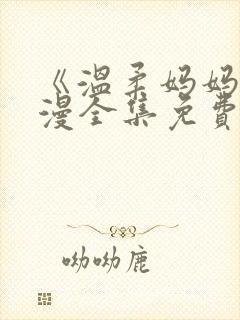 《温柔妈妈
漫全集免費
呦呦鹿